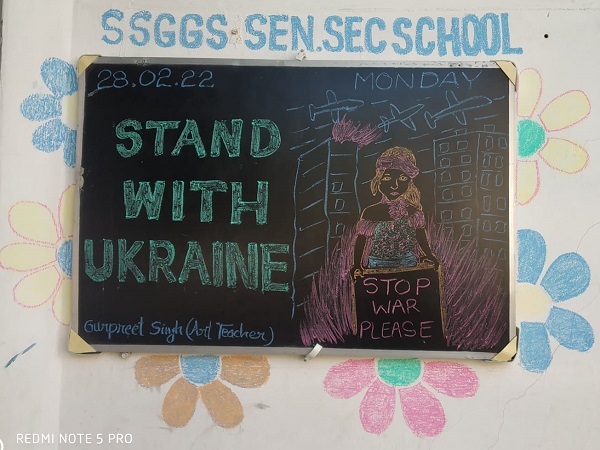 SSGGS SEN.SEC SCHOOL
28.02.22 MONDAY
STAND
WITH
UKRAINE
STOP
WAR
PLEASE
Gurpreet Singh (Art Teacher)
REDMI NOTE 5 PRO